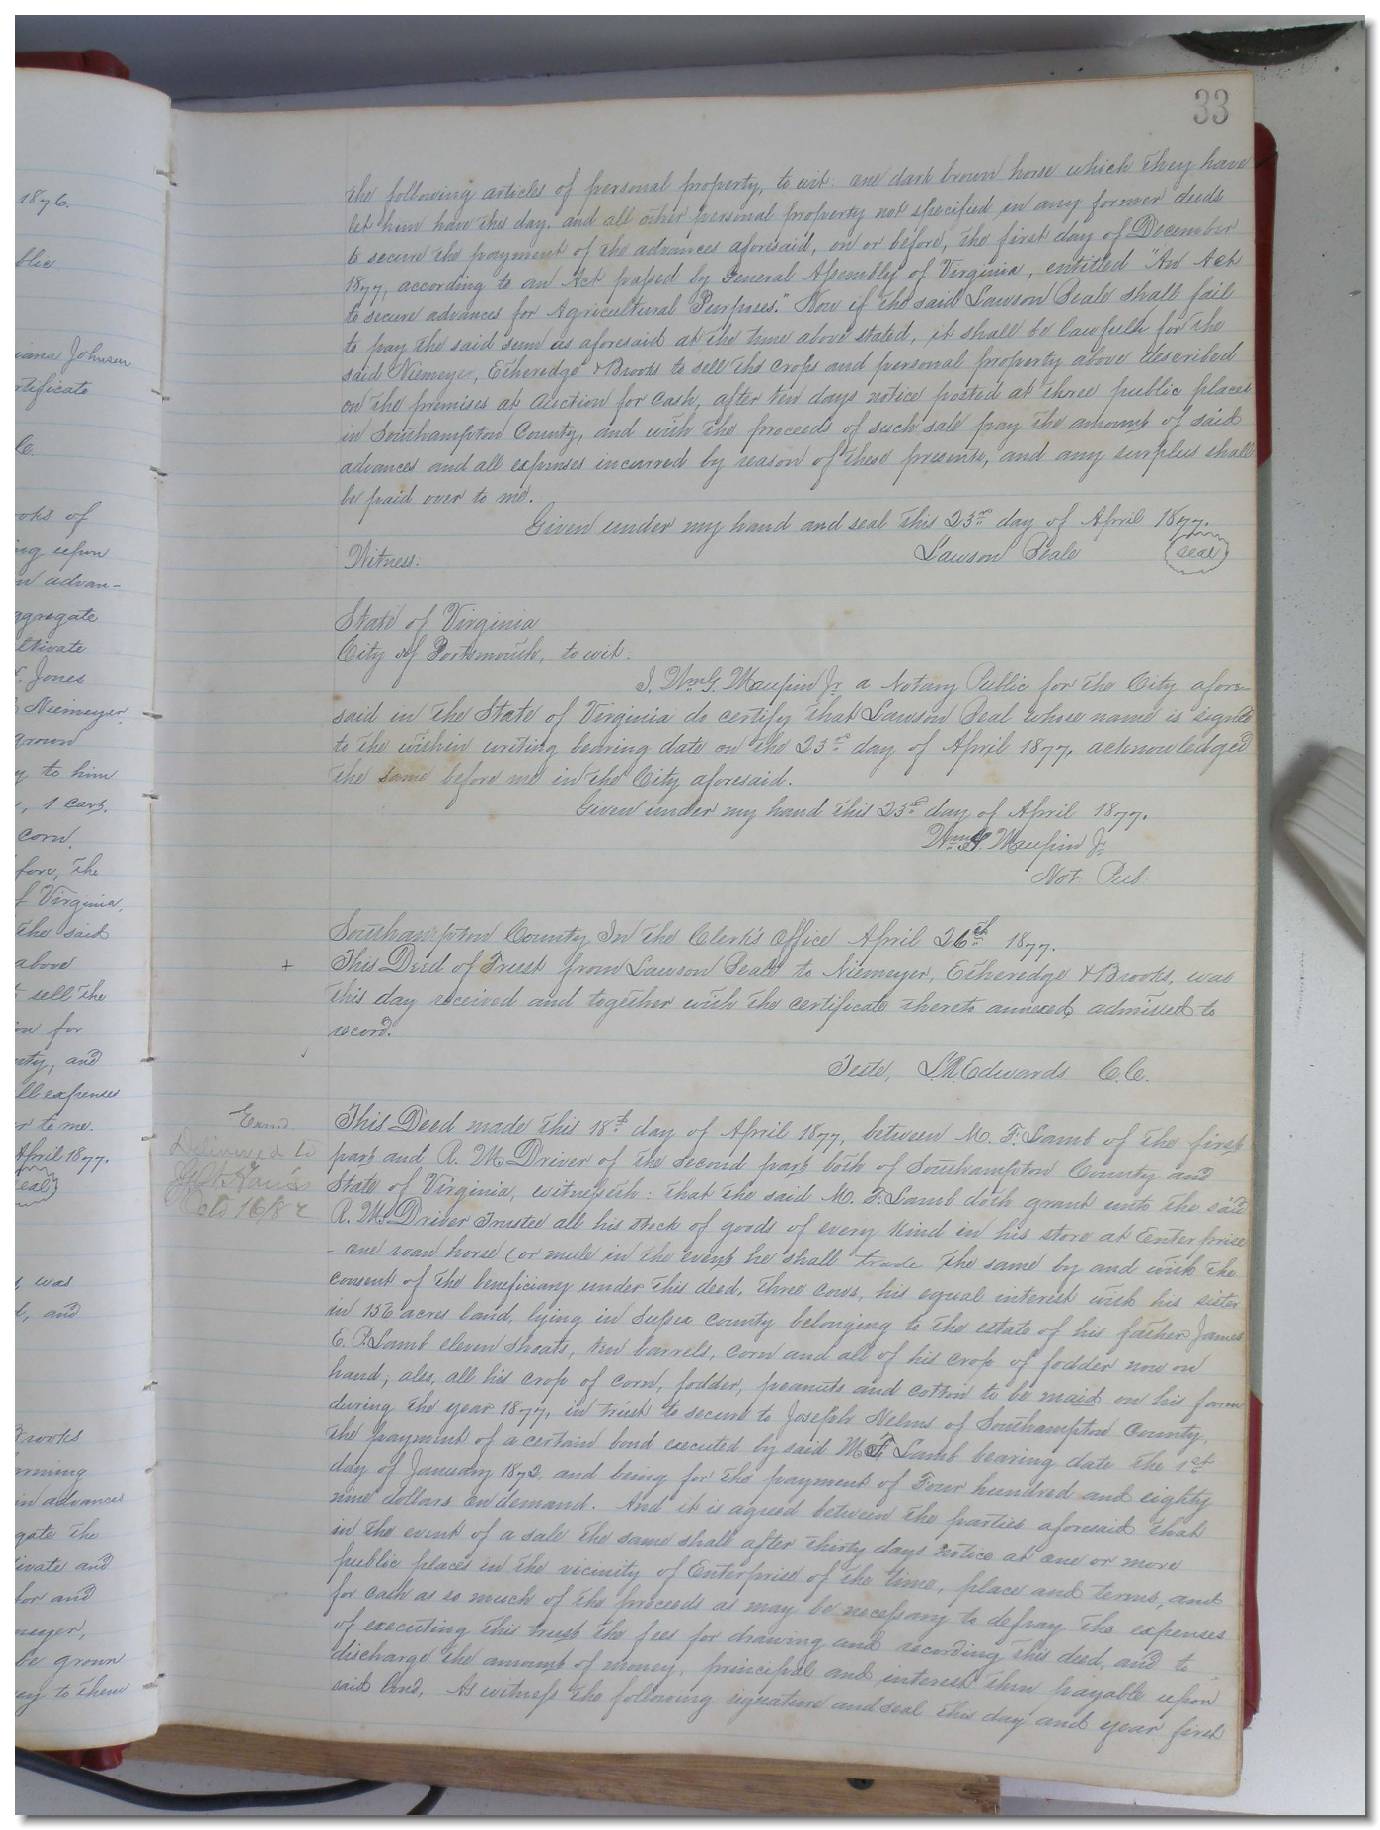 33
1876.
blic
iana Johnson
rtificate
oks of
ing upon
n advan-
aggregate
ltivate
Jones
Niemeyer
grown
y to him
, 1 cart,
corn,
fore, the
f Virginia,
the said
above
t sell the
on for
nty, and
ll expenses
r to me.
April 1877.
eal
, was
d, and
Brooks
in advances
gate the
tivate and
for and
meyer,
be grown
ey to them
the following articles of personal property, to wit: one dark brown horse which they have
let him have this day, and all other personal property not specified in any former deeds
to secure the payment of the advances aforesaid, on or before, the first day of December
1877, according to an Act passed by General Assembly of Virginia, entitled "An Act
to secure advances for Agricultural Purposes." Now if the said Lawson Beale shall fail
to pay the said sum as aforesaid at the time above stated, it shall be lawfull for the
said Niemeyer, Etheredge & Brooks to sell the crops and personal property above described
on the premises at auction for cash, after ten days notice posted at three public places
in Southampton County, and with the proceeds of such sale pay the amount of said
advances and all expenses incurred by reason of these presents, and any surplus shall
be paid over to me.
Given under my hand and seal this 23rd day of April 1877.
Witness: Lawson Beale seal
State of Virginia
City of Portsmouth, to wit:
I, Wm G. Maupin Jr a Notary Public for the City afore-
said in the State of Virginia do certify that Lawson Beal whose name is signed
to the within writing bearing date on the 23rd day of April 1877, acknowledged
the same before me in the City aforesaid.
Given under my hand this 23rd day of April 1877.
Wm G. Maupin Jr
Not. Pub.
Southampton County In the Clerk's Office April 26th 1877.
+ This Deed of Trust from Lawson Beale to Niemeyer, Etheredge & Brooks, was
this day received and together with the certificate thereto annexed, admitted to
record.
Teste, L R Edwards C.C.
Exmd
Delivered to
Oct 16/82
This Deed made this 18th day of April 1877, between M. F. Lamb of the first
part and R. M. Driver of the second part both of Southampton County and
State of Virginia, witnesseth: that the said M. F. Lamb doth grant unto the said
R. M. Driver Trustee all his stock of goods of every kind in his store at Enterprise
- one roan horse (or mule in the event he shall trade the same by and with the
consent of the beneficiary under this deed, three cows, his equal interest with his sister
in 156 acres land, lying in Sussex county belonging to the estate of his father James
E. P. Lamb eleven shoats, ten barrels, corn and all of his crop of fodder now on
hand; also, all his crop of corn, fodder, peanuts and cotton to be maid on his farm
during the year 1877, in trust to secure to Joseph Nelms of Southampton County,
the payment of a certain bond executed by said M. F. Lamb bearing date the 1st
day of January 1872, and being for the payment of Four hundred and eighty
nine dollars on demand. And it is agreed between the parties aforesaid that
in the event of a sale the same shall after thirty days notice at one or more
public places in the vicinity of Enterprise of the time, place and terms, and
for cash as so much of the proceeds as may be necessary to defray the expenses
of executing this trust the fees for drawing and recording this deed, and to
discharge the amount of money, principal and interest then payable upon
said bond, As witness the following signature and seal this day and year first